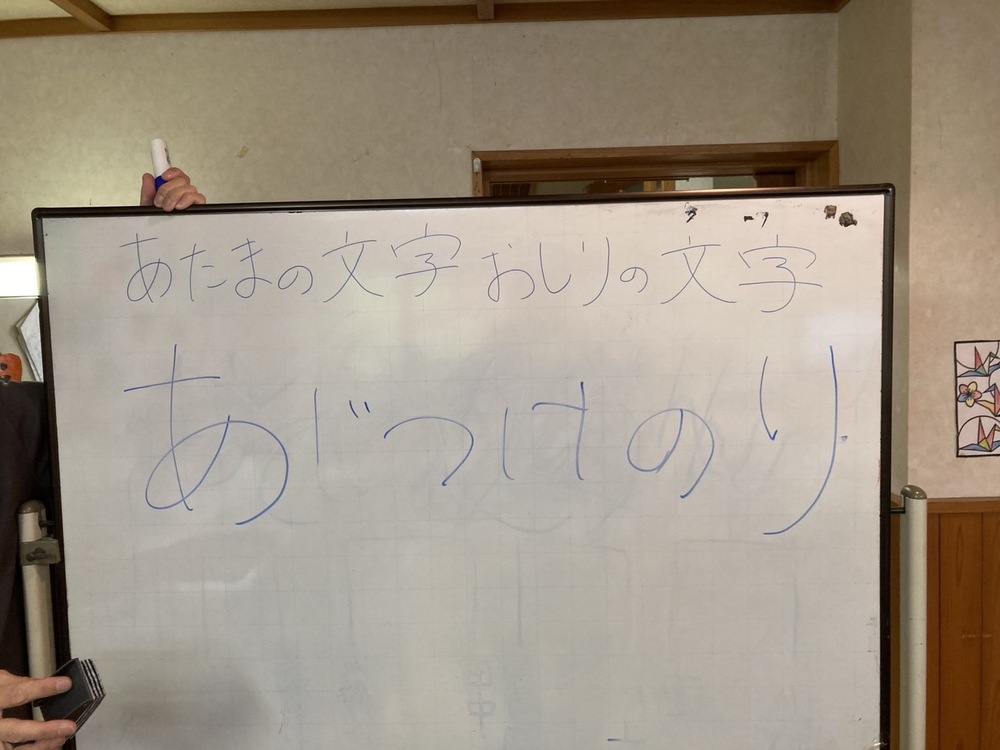 あたまの文字 おしりの文字
あじつけのり